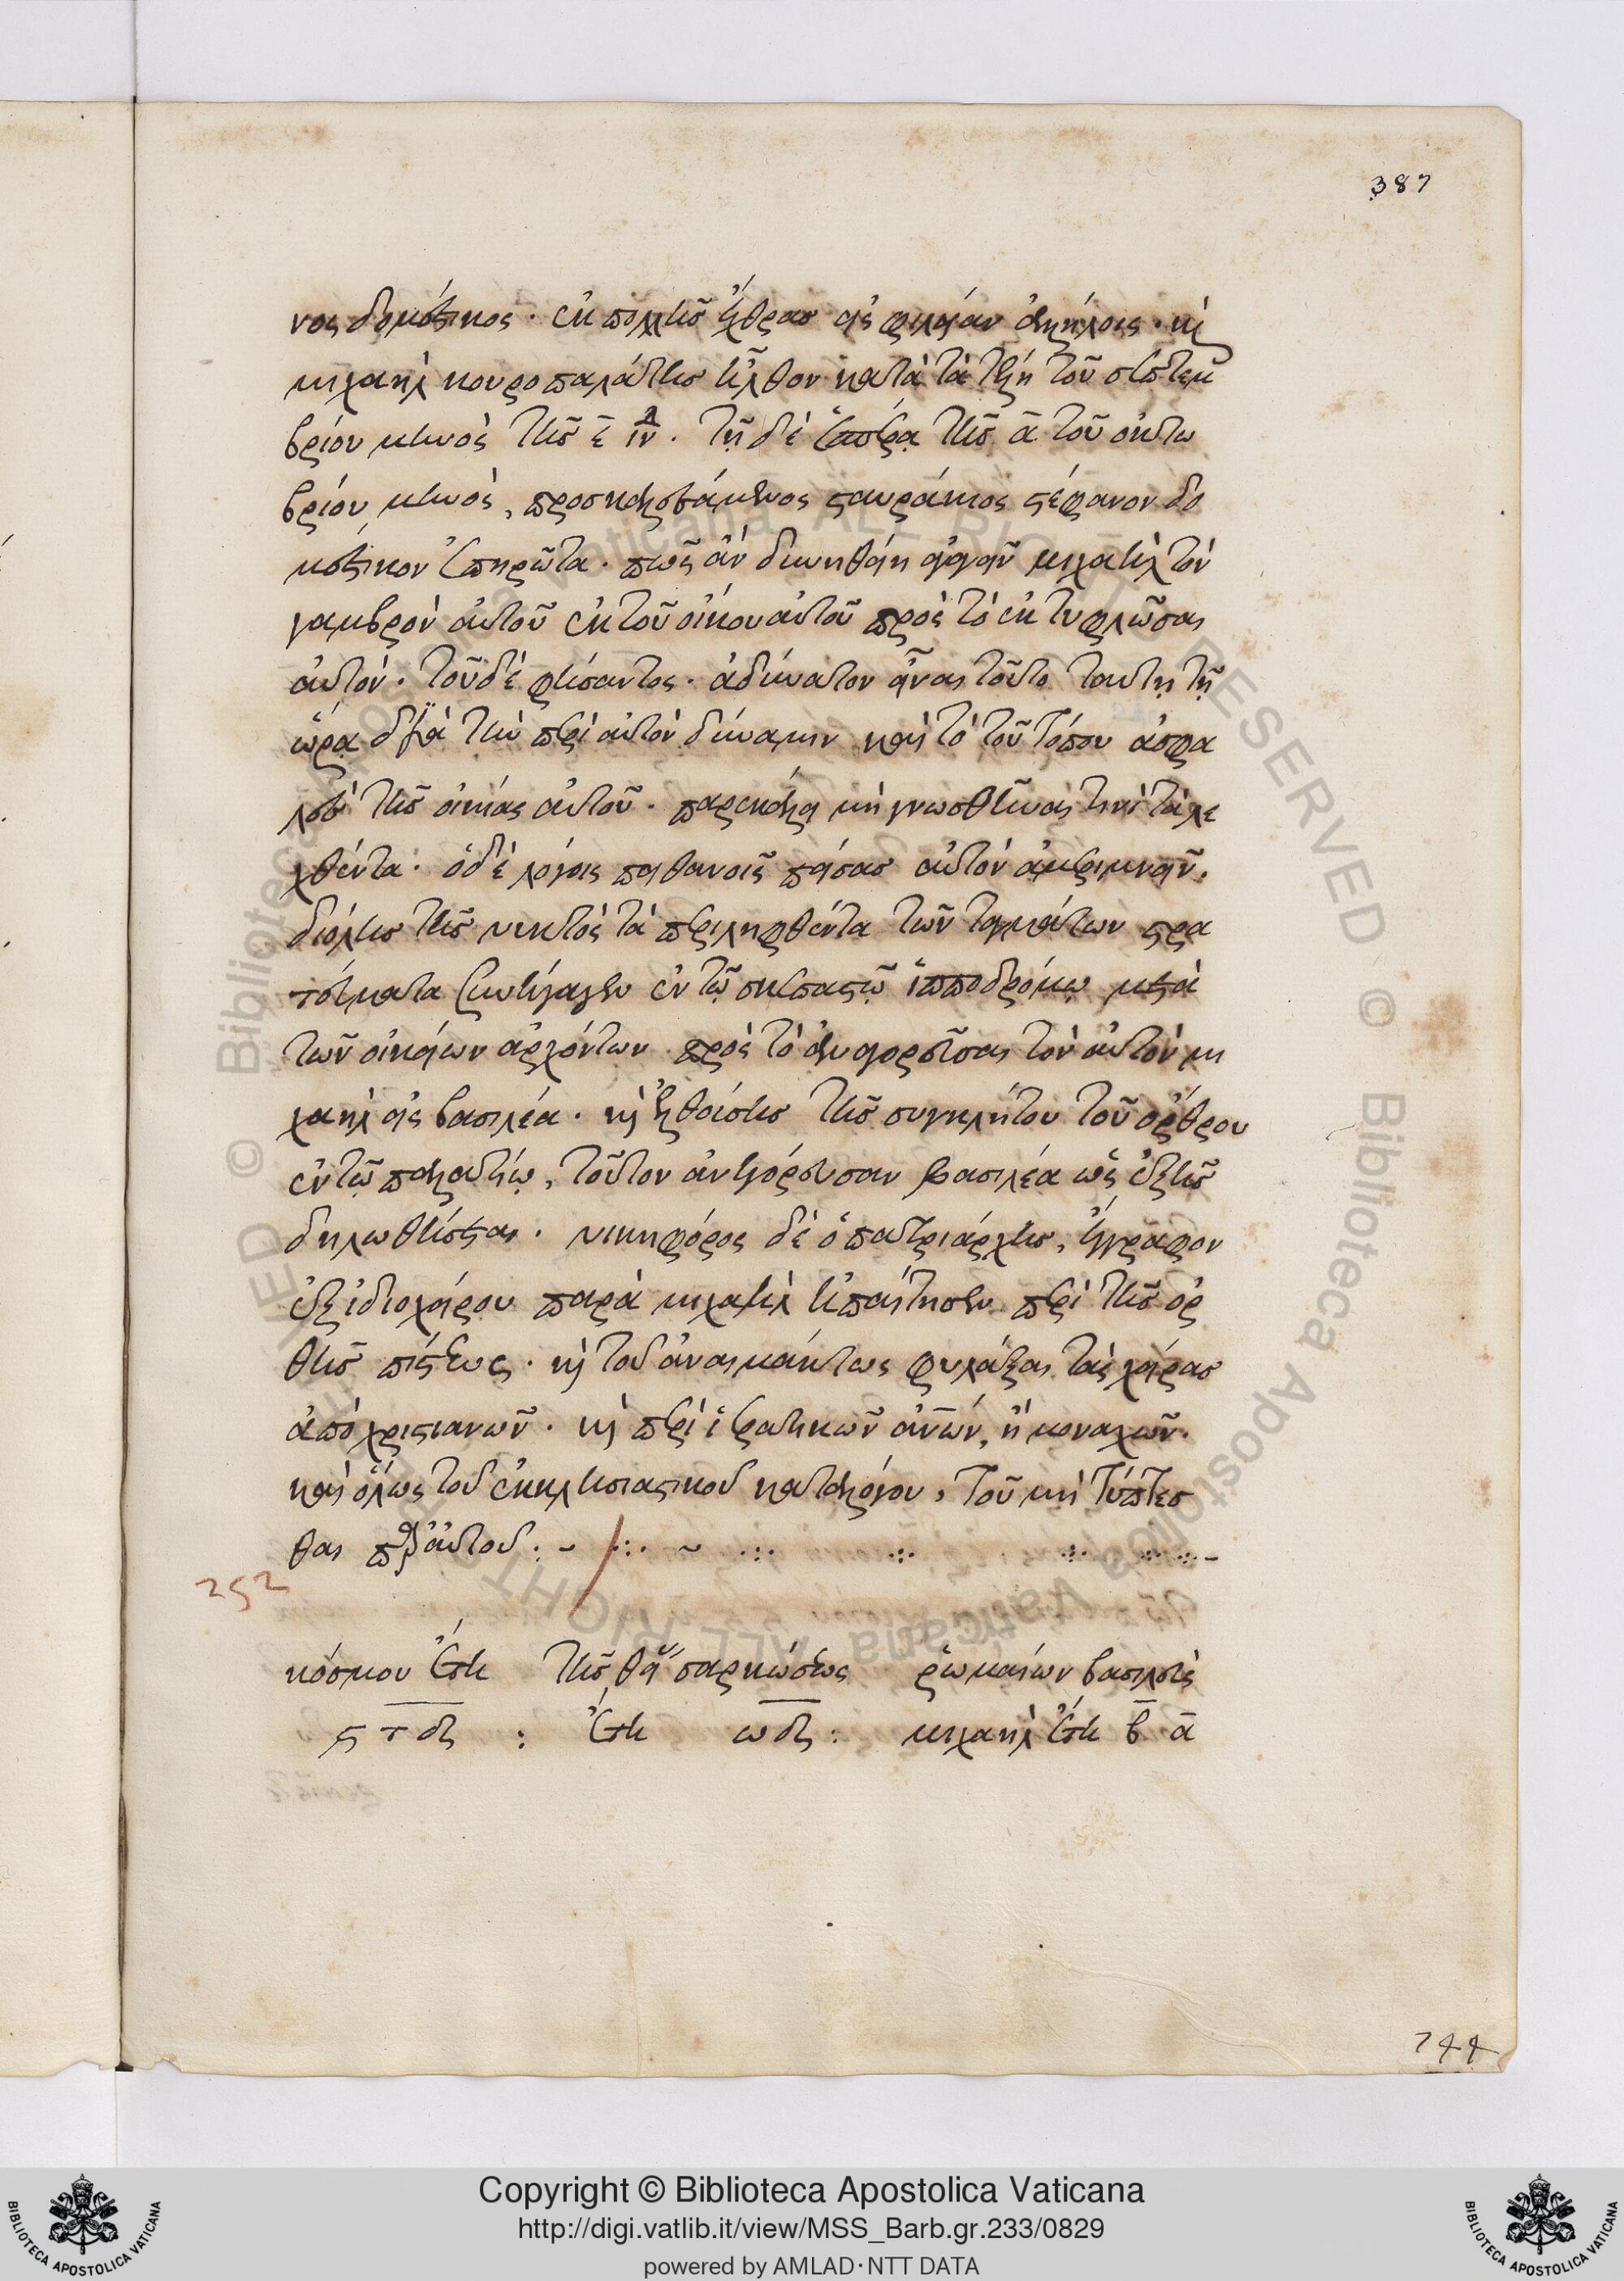 387
νος δομέστικος. ἐκ πολλῆς ἔχθρας εἰς φιλίαν ἀλλήλοις. καὶ
μιχαὴλ κουροπαλάτης ἦλθον κατὰ τὰ τέλη τοῦ σεπτεμ
βρίου μηνὸς τῆς ε̄ ἰν. τῇ δὲ ἑσπέρᾳ τῆς ᾱ τοῦ ὀκτω
βρίου μηνὸς, προσκαλεσάμενος σταυράκιος στέφανον δο
μέστικον ἐπηρῶτα. πῶς ἂν δυνηθείη ἀγαγεῖν μιχαὴλ τὸν
γαμβρὸν αὐτοῦ ἐκ τοῦ οἴκου αὐτοῦ πρὸς τὸ ἐκτυφλῶσαι
αὐτόν. τοῦ δὲ φήσαντος. ἀδύνατον εἶναι τοῦτο ταύτῃ τῇ
ὥρᾳ διὰ τὴν περὶ αὐτὸν δύναμιν καὶ τὸ τοῦ τόπου ἀσφα
λὲς τῆς οἰκίας αὐτοῦ. παρεκάλει μὴ γνωσθῆναι τινὶ τὰ λε
χθέντα. ὁ δὲ λόγοις πιθανοῖς πείσας αὐτὸν ἀμεριμνεῖν.
δι ὅλης τῆς νυκτὸς τὰ περιληφθέντα τῶν ταγμάτων στρα
τεύματα συνήγαγεν ἐν τῷ σκεπαστῷ ἱπποδρόμῳ μετὰ
τῶν οἰκείων ἀρχόντων πρὸς τὸ ἀναγορεῦσαι τὸν αὐτὸν μι
χαὴλ εἰς βασιλέα. καὶ ἐλθούσης τῆς συγκλήτου τοῦ ὄρθρου
ἐν τῷ παλατίῳ, τοῦτον ἀνηγόρευσαν βασιλέα ὡς ἑξῆς
δηλωθήσεται. νικηφόρος δὲ ὁ πατριάρχης, ἔγγραφον
ἐξ ἰδιοχείρου παρὰ μιχαὴλ ἠπαίτησεν περὶ τῆς ὀρ
θῆς πίστεως. καὶ τοῦ ἀναιμάκτως φυλάξαι τὰς χεῖρας
ἀπὸ χριστιανῶν. καὶ περὶ ἱερατικῶν ἀν̅ῶν, ἢ μοναχῶν.
καὶ ὅλως τοῦ ἐκκλησιαστικοῦ καταλόγου, τοῦ μὴ τύπτεσ
θαι παρ αὐτοῦ:
252
κόσμου ἔτη τῆς θείας σαρκώσεως ῥωμαίων βασιλεὺς
ςτδ: ἔτη ωδ: μιχαὴλ ἔτη β ᾱ
744
Copyright © Biblioteca Apostolica Vaticana
http://digi.vatlib.it/view/MSS_Barb.gr.233/0829
powered by AMLAD·NTT DATA
BIBLIOTECA APOSTOLICA VATICANA
BIBLIOTECA APOSTOLICA VATICANA